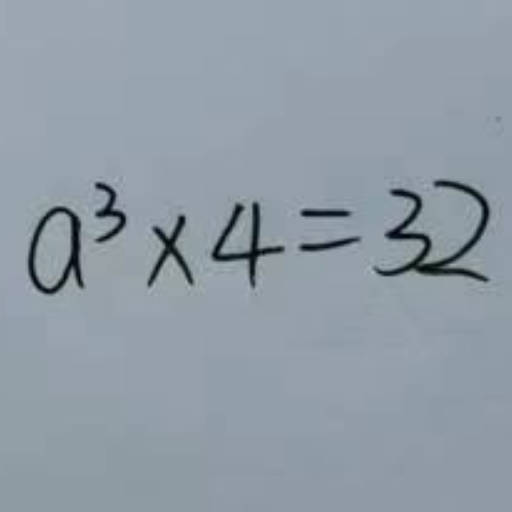 a³×4=32